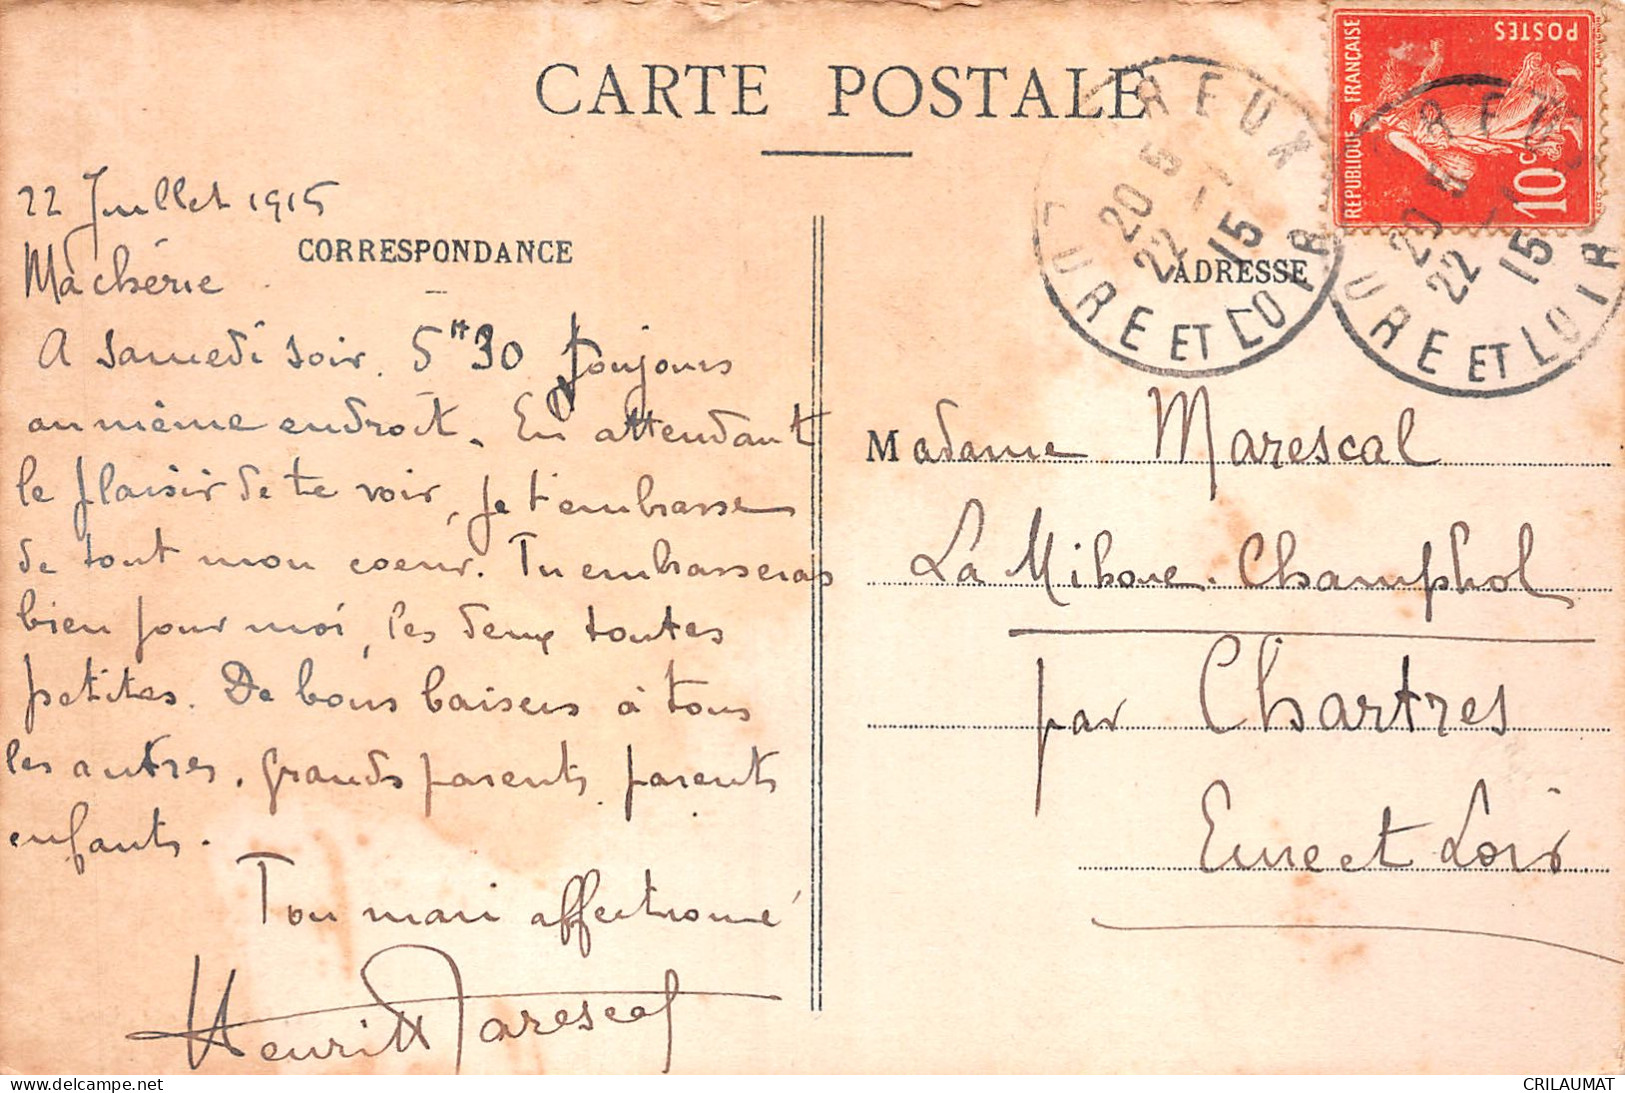 CARTE POSTALE
22 Juillet 1915
CORRESPONDANCE
Ma chérie
A samedi soir. 5H30 Toujours
au même endroit. En attendant
le plaisir de te voir, je t'embrasse
de tout mon coeur. Tu embrasseras
bien pour moi, les deux toutes
petites. De bons baisers à tous
les autres, grands parents, parents
enfants.
Ton mari affectionné
Henri Marescal
REPUBLIQUE FRANÇAISE
POSTES
10c
DREUX
20 5
22 - 7
15
EURE ET LOIR
DREUX
20 5
22 - 7
15
EURE ET LOIR
ADRESSE
Madame Marescal
La Mihoue. Champhol
par Chartres
Eure et Loir
CRILAUMAT